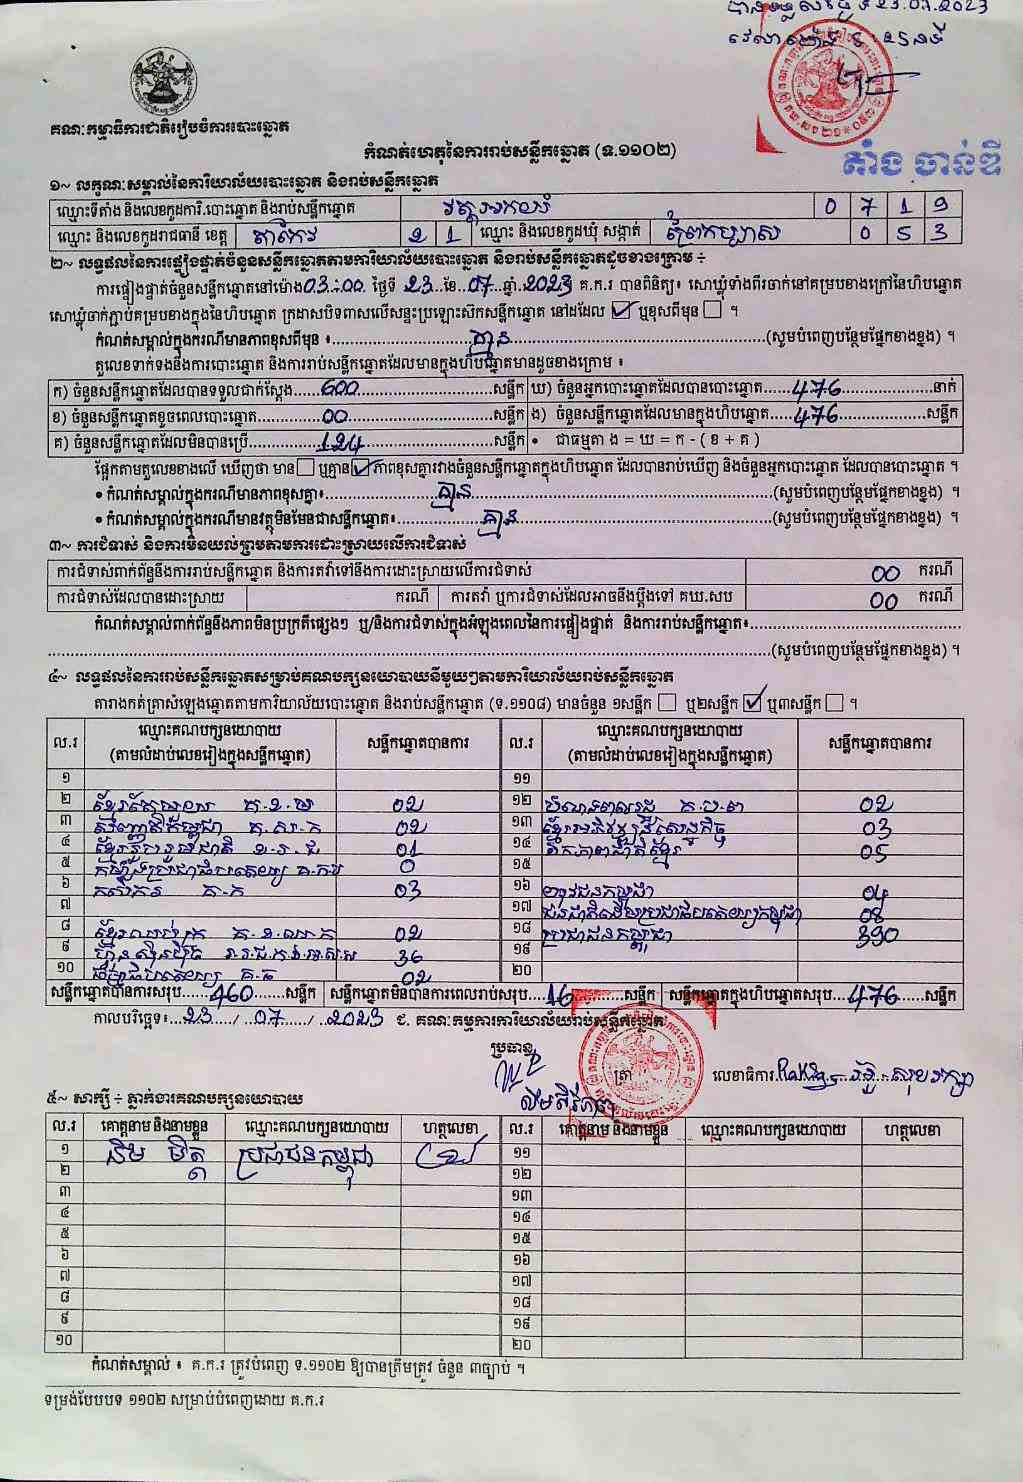 បានទទួលថ្ងៃទី 23.07.2023
គណៈកម្មាធិការជាតិរៀបចំការបោះឆ្នោត
កំណត់ហេតុនៃការរាប់សន្លឹកឆ្នោត (ទ.១១០២)
តាំង ចាន់ឌី
១~ លក្ខណៈសម្គាល់នៃការិយាល័យបោះឆ្នោត និងរាប់សន្លឹកឆ្នោត
ឈ្មោះទីតាំង និងលេខកូដការិ.បោះឆ្នោត និងរាប់សន្លឹកឆ្នោត 0 7 1 9
ឈ្មោះ និងលេខកូដរាជធានី ខេត្ត តាកែវ 2 1 ឈ្មោះ និងលេខកូដឃុំ សង្កាត់ ព្រៃកប្បាស 0 5 3
២~ លទ្ធផលនៃការផ្ទៀងផ្ទាត់ចំនួនសន្លឹកឆ្នោតតាមការិយាល័យបោះឆ្នោត និងរាប់សន្លឹកឆ្នោតដូចខាងក្រោម ÷
ការផ្ទៀងផ្ទាត់ចំនួនសន្លឹកឆ្នោតនៅម៉ោង03:00 ថ្ងៃទី 23 ខែ 07 ឆ្នាំ 2023 គ.ក.រ បានពិនិត្យ៖ សោឃ្លុំទាំងពីរចាក់នៅគម្របខាងក្រៅនៃហិបឆ្នោត
សោឃ្លុំចាក់ភ្ជាប់គម្របខាងក្នុងនៃហិបឆ្នោត ក្រដាសបិទពាសលើសន្ទះប្រឡោះស៊ីកសន្លឹកឆ្នោត នៅដដែល ☑ ឬខុសពីមុន ☐ ។
កំណត់សម្គាល់ក្នុងករណីមានភាពខុសពីមុន ៖ គ្មាន (សូមបំពេញបន្ថែមផ្នែកខាងខ្នង) ។
តួលេខទាក់ទងនឹងការបោះឆ្នោត និងការរាប់សន្លឹកឆ្នោតដែលមានក្នុងហិបឆ្នោតមានដូចខាងក្រោម ៖
ក) ចំនួនសន្លឹកឆ្នោតដែលបានទទួលជាក់ស្តែង 600 សន្លឹក ឃ) ចំនួនអ្នកបោះឆ្នោតដែលបានបោះឆ្នោត 476 នាក់
ខ) ចំនួនសន្លឹកឆ្នោតខូចពេលបោះឆ្នោត 00 សន្លឹក ង) ចំនួនសន្លឹកឆ្នោតដែលមានក្នុងហិបឆ្នោត 476 សន្លឹក
គ) ចំនួនសន្លឹកឆ្នោតដែលមិនបានប្រើ 124 សន្លឹក • ជាធម្មតា ង = ឃ = ក - ( ខ + គ )
ផ្អែកតាមតួលេខខាងលើ ឃើញថា មាន ☐ ឬគ្មាន ☑ ភាពខុសគ្នារវាងចំនួនសន្លឹកឆ្នោតក្នុងហិបឆ្នោត ដែលបានរាប់ឃើញ និងចំនួនអ្នកបោះឆ្នោត ដែលបានបោះឆ្នោត ។
• កំណត់សម្គាល់ក្នុងករណីមានភាពខុសគ្នា៖ គ្មាន (សូមបំពេញបន្ថែមផ្នែកខាងខ្នង) ។
• កំណត់សម្គាល់ក្នុងករណីមានវត្ថុមិនមែនជាសន្លឹកឆ្នោត៖ គ្មាន (សូមបំពេញបន្ថែមផ្នែកខាងខ្នង) ។
៣~ ការជំទាស់ និងការមិនយល់ព្រមតាមការដោះស្រាយលើការជំទាស់
ការជំទាស់ពាក់ព័ន្ធនឹងការរាប់សន្លឹកឆ្នោត និងការតវ៉ាទៅនឹងការដោះស្រាយលើការជំទាស់ 00 ករណី
ការជំទាស់ដែលបានដោះស្រាយ ករណី ការតវ៉ា ឬការជំទាស់ដែលអាចនឹងប្តឹងទៅ គឃ.សប 00 ករណី
កំណត់សម្គាល់ពាក់ព័ន្ធនឹងភាពមិនប្រក្រតីផ្សេងៗ ឬ/និងការជំទាស់ក្នុងអំឡុងពេលនៃការផ្ទៀងផ្ទាត់ និងការរាប់សន្លឹកឆ្នោត៖
(សូមបំពេញបន្ថែមផ្នែកខាងខ្នង) ។
៤~ លទ្ធផលនៃការរាប់សន្លឹកឆ្នោតសម្រាប់គណបក្សនយោបាយនីមួយៗតាមការិយាល័យរាប់សន្លឹកឆ្នោត
តារាងកត់ត្រាសំឡេងឆ្នោតតាមការិយាល័យបោះឆ្នោត និងរាប់សន្លឹកឆ្នោត (ទ.១១០៨) មានចំនួន ១សន្លឹក ☐ ឬ២សន្លឹក ☑ ឬ៣សន្លឹក ☐ ។
ល.រ ឈ្មោះគណបក្សនយោបាយ (តាមលំដាប់លេខរៀងក្នុងសន្លឹកឆ្នោត) សន្លឹកឆ្នោតបានការ ល.រ ឈ្មោះគណបក្សនយោបាយ (តាមលំដាប់លេខរៀងក្នុងសន្លឹកឆ្នោត) សន្លឹកឆ្នោតបានការ
១ ១១
២ 02 ១២ 02
៣ 02 ១៣ ខ្មែរអភិវឌ្ឍន៍សេដ្ឋកិច្ច 03
៤ ខ្មែររួបរួមជាតិ 01 ១៤ ឯកភាពជាតិខ្មែរ 05
៥ កម្លាំងប្រជាធិបតេយ្យ 0 ១៥
៦ កសិករ 03 ១៦ យុវជនកម្ពុជា 04
៧ ១៧ ជនជាតិដើមប្រជាធិបតេយ្យកម្ពុជា 08
៨ 02 ១៨ ប្រជាជនកម្ពុជា 390
៩ ហ៊្វុនស៊ិនប៉ិច 36 ១៩
១០ ធម្មាធិបតេយ្យ 02 ២០
សន្លឹកឆ្នោតបានការសរុប 460 សន្លឹក សន្លឹកឆ្នោតមិនបានការពេលរាប់សរុប 16 សន្លឹក សន្លឹកឆ្នោតក្នុងហិបឆ្នោតសរុប 476 សន្លឹក
កាលបរិច្ឆេទ៖ 23 / 07 / 2023 ជ. គណៈកម្មការការិយាល័យរាប់សន្លឹកឆ្នោត
ប្រធាន
ត្រា លេខាធិការ
៥~ សាក្សី ÷ ភ្នាក់ងារគណបក្សនយោបាយ
ល.រ គោត្តនាម និងនាមខ្លួន ឈ្មោះគណបក្សនយោបាយ ហត្ថលេខា ល.រ គោត្តនាម និងនាមខ្លួន ឈ្មោះគណបក្សនយោបាយ ហត្ថលេខា
១ ប្រជាជនកម្ពុជា ១១
២ ១២
៣ ១៣
៤ ១៤
៥ ១៥
៦ ១៦
៧ ១៧
៨ ១៨
៩ ១៩
១០ ២០
កំណត់សម្គាល់ ៖ គ.ក.រ ត្រូវបំពេញ ទ.១១០២ ឱ្យបានត្រឹមត្រូវ ចំនួន ៣ច្បាប់ ។
ទម្រង់បែបបទ ១១០២ សម្រាប់បំពេញដោយ គ.ក.រ